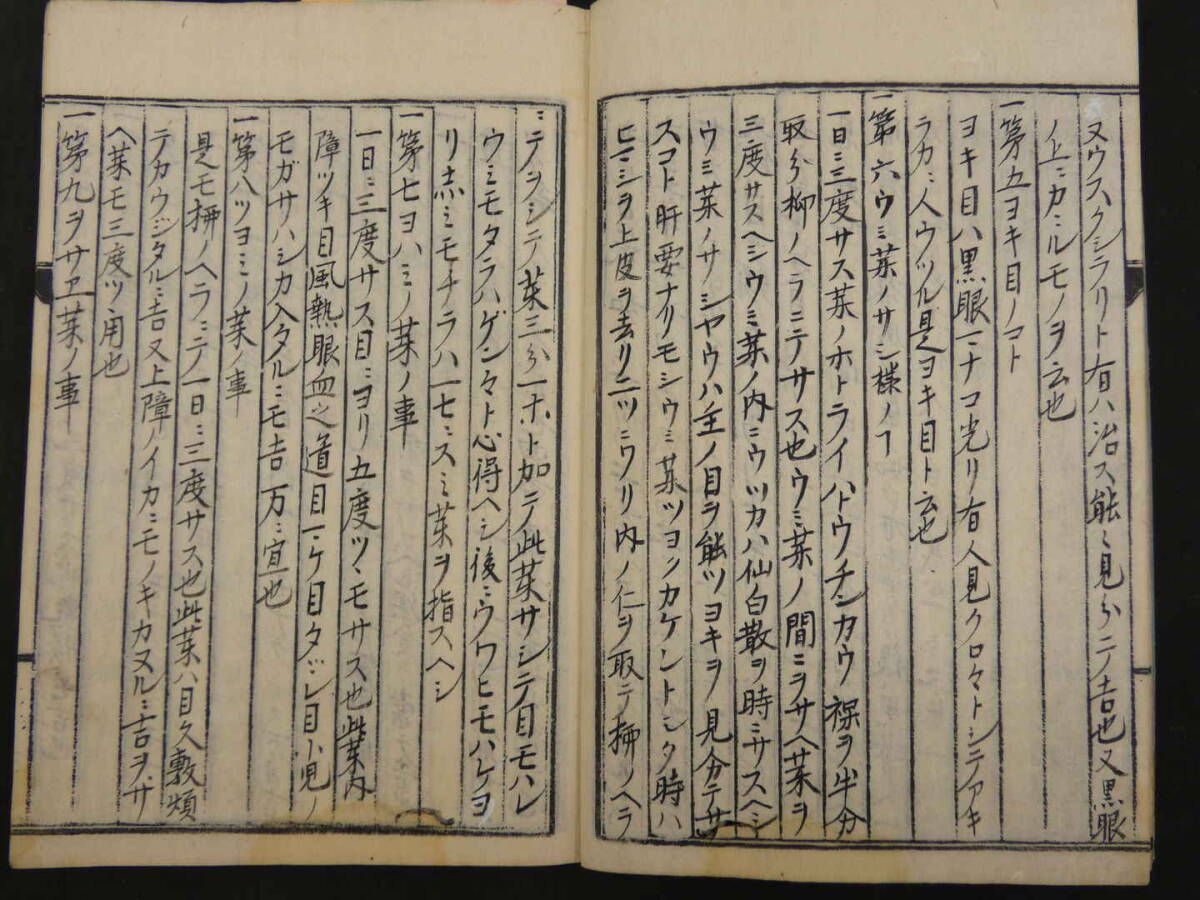 又ウスクシラリト有ハ治ス能々見分ニテ吉也又黒眼
ノ上ニカヽルモノヲ云也
一第五ヨキ目ノコト
ヨキ目ハ黒眼一ナコ光リ有人見クロ々トシテアキ
ラカニ人ウツル是ヨキ目ト云也
一第六ウミ薬ノサシ様ノヿ
一日ニ三度サス薬ノホトライハトウチンカウ 裸ヲ半分
取分柳ノヘラニテサス也ウミ薬ノ間ニヲサヘ薬ヲ
三度サスヘシウミ薬ノ内ニウツカハ仙白散ヲ時ミサスヘシ
ウミ薬ノサシヤウハ主ノ目ラ能ツヨキヲ見分テサ
スコト肝要ナリモシウミ薬ツヨクカケントシタ時ハ
ヒマシヲ上皮ヲ去リ二ツニワリ内ノ仁ヲ取テ柳ノヘラ
ニテヲシテ薬三分一ホト加テ此薬サシテ目モハレ
ウミモタラハゲン々ト心得ヘシ後ニウワヒモハケヨ
リ赤ミモチラハ一七ニスミ薬ヲ指スヘシ
一第七ヨハミノ薬ノ事
一日ニ三度サス目ニヨリ五度ツヽモサス也此薬内
障ツキ目風熱眼血之道目一ケ目タヾレ目小児ノ
モガサハシカ入タルニモ吉万ニ宜也
一第八ツヨミノ薬ノ事
是モ柳ノヘラニテ一日ニ三度サス也此薬ハ目久敷煩
テカウジタルニ吉又上障ノイカミモノキカヌルニ吉ヲサ
ヘ薬モ三度ツヽ用也
一第九ヲサヱ薬ノ事